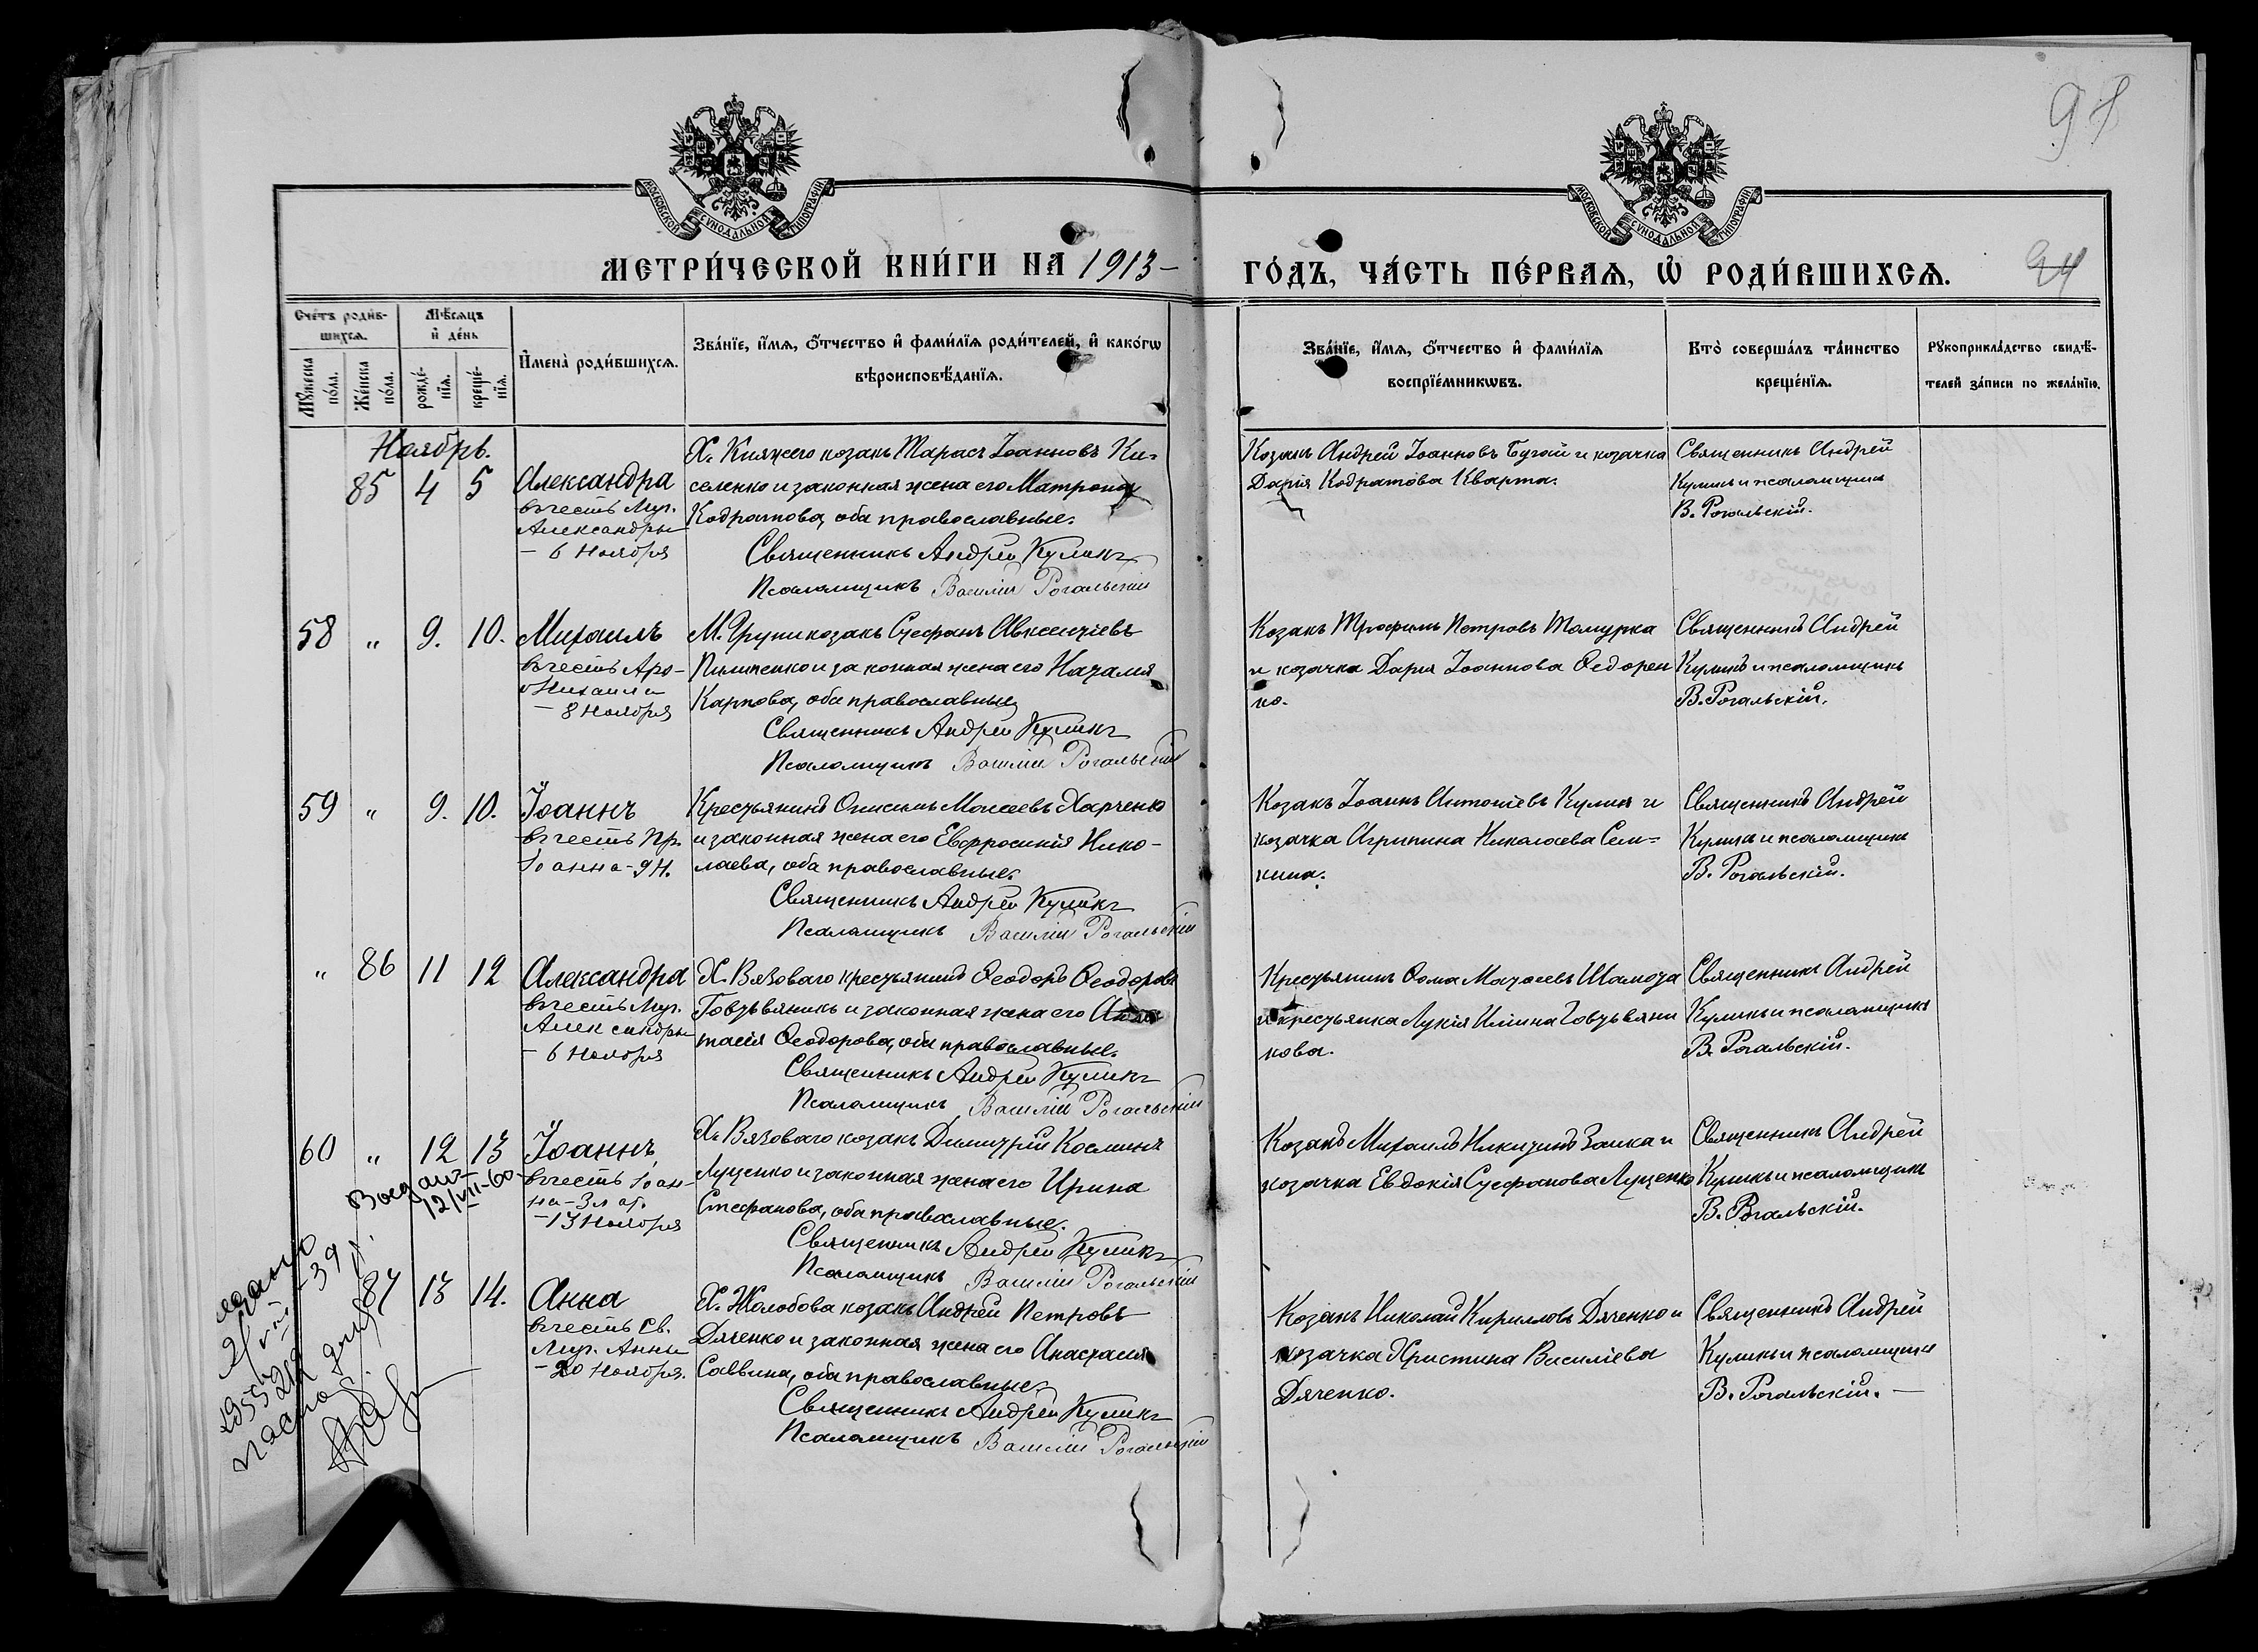 97
МОСКОВСКОЙ СѴНОДАЛЬНОЙ ТИПОГРАФІИ
МОСКОВСКОЙ СѴНОДАЛЬНОЙ ТИПОГРАФІИ
МЕТРИ́ЧЕСКОЙ КНИ́ГИ НА 1913-
ГО́ДЪ, ЧА́СТЬ ПЕ́РВАѦ, Ѡ҆ РОДИ́ВШИХСѦ.
Сче́тъ роди́в-
шихсѧ.
Мꙋ́жеска по́ла.
Же́нска по́ла.
Мѣ́сѧцъ
и҆ де́нь
рожде́-
нїѧ.
креще́-
нїѧ.
И҆мена̀ роди́вшихсѧ.
Зва́нїе, и҆́мѧ, ѻ҆́тчество и҆ фами́лїѧ роди́телей, и҆ како́гѡ
вѣроисповѣ́данїѧ.
Зва́нїе, и҆́мѧ, ѻ҆́тчество и҆ фами́лїѧ
воспрїе́мникѡвъ.
Кто̀ соверша́лъ та́инство
креще́нїѧ.
Рꙋкоприкла́дство свидѣ́-
телей за́писи по жела́нїю.
Ноябрь.
85 4 5
Александра
въ честь Муч.
Александры
- 6 Ноября
Х. Княжего козакъ Тарасъ Іоанновъ Ки-
селенко и законная жена его Матрона
Кодратова, оба православные.
Священникъ Андрей Куликъ
Псаломщикъ Василій Рогальскій
Козакъ Андрей Іоанновъ Бугай и козачка
Дарія Кодратова Кварта.
Священникъ Андрей
Куликъ и псаломщикъ
В. Рогальскій.
58 " 9. 10.
Михаилъ
въ честь Арх-
Михаила
- 8 Ноября
М. Груни козакъ Стефанъ Авксентіевъ
Пилипенко и законная жена его Наталія
Карпова, оба православные
Священникъ Андрей Куликъ
Псаломщикъ Василій Рогальскій
Козакъ Трофимъ Петровъ
и козачка Дарія Іоаннова Федорен
ко.
Священникъ Андрей
Куликъ и псаломщикъ
В. Рогальскій.
59 " 9. 10.
Іоаннъ
въ честь Пр.
Іоанна - 9 Н.
Крестьянинъ Онисимъ Моисеевъ Харченко
и законная жена его Евфросинія Нико-
лаева, оба православные.
Священникъ Андрей Куликъ
Псаломщикъ Василій Рогальскій
Козакъ Іоаннъ Антоніевъ Куликъ и
козачка Агрипина Николаева Сем-
кина.
Священникъ Андрей
Куликъ и псаломщикъ
В. Рогальскій.
" 86 11 12
Александра
въ честь Муч.
Александры
- 6 Ноября
Х. Вязоваго крестьянинъ Ѳеодоръ Ѳеодоровъ
Говтвяникъ и законная жена его Анас
тасія Ѳеодорова, оба православные.
Священникъ Андрей Куликъ
Псаломщикъ Василій Рогальскій
Крестьянинъ Ѳома Матѳеевъ
и крестьянка Лукія Ильина Говтвяни
кова.
Священникъ Андрей
Куликъ и псаломщикъ
В. Рогальскій.
60 " 12 13
Іоаннъ
въ честь Іоан-
на - Злат.
- 13 Ноября
12/VII-60
Х. Вязоваго козакъ Димитрій Косминъ
Луценко и законная жена его Ирина
Стефанова, оба православные.
Священникъ Андрей Куликъ
Псаломщикъ Василій Рогальскій
Козакъ Михаилъ Никитинъ Заика и
козачка Евдокія Стефанова Луценко
Священникъ Андрей
Куликъ и псаломщикъ
В. Рогальскій.
87 13 14.
Анна
въ честь Св.
Муч. Анны
- 20 Ноября.
Х. Жолобова козакъ Андрей Петровъ
Дяченко и законная жена его Анастасія
Саввина, оба православные.
Священникъ Андрей Куликъ
Псаломщикъ Василій Рогальскій
Козакъ Николай Кирилловъ Дяченко и
козачка Христина Василіева
Дяченко.
Священникъ Андрей
Куликъ и псаломщикъ
В. Рогальскій. -